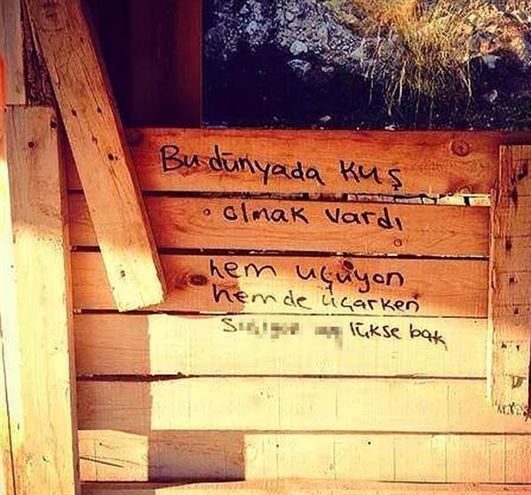 Bu dünyada kuş
olmak vardı
hem uçuyon
hem de uçarken
lükse bak